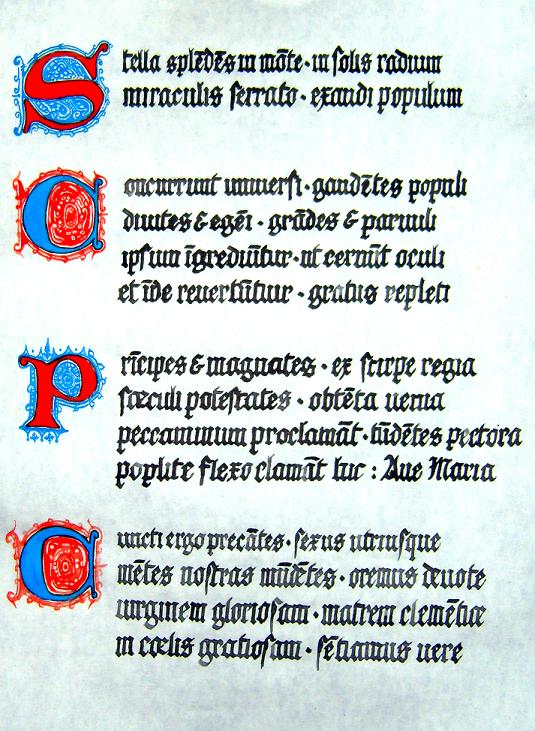 Stella splēdēs in mōte · in solis radium
miraculis serrato · exaudi populum
Concurrunt uniuersi · gaudētes populi
diuites & egēi · grādes & paruuli
ipsum īgrediūtur · ut cernūt oculi
et īde reuertūtur · gratiis repleti
Prīcipes & magnates · ex stirpe regia
sæculi potestates · obtēta uenia
peccaminum proclamāt · tūdētes pectora
poplite flexo clamāt hic : Aue Maria
Cuncti ergo precātes · sexus utriusque
mētes nostras mūdētes · oremus deuote
uirginem gloriosam · matrem clemētiæ
in cœlis gratiosam · sētiamus uere